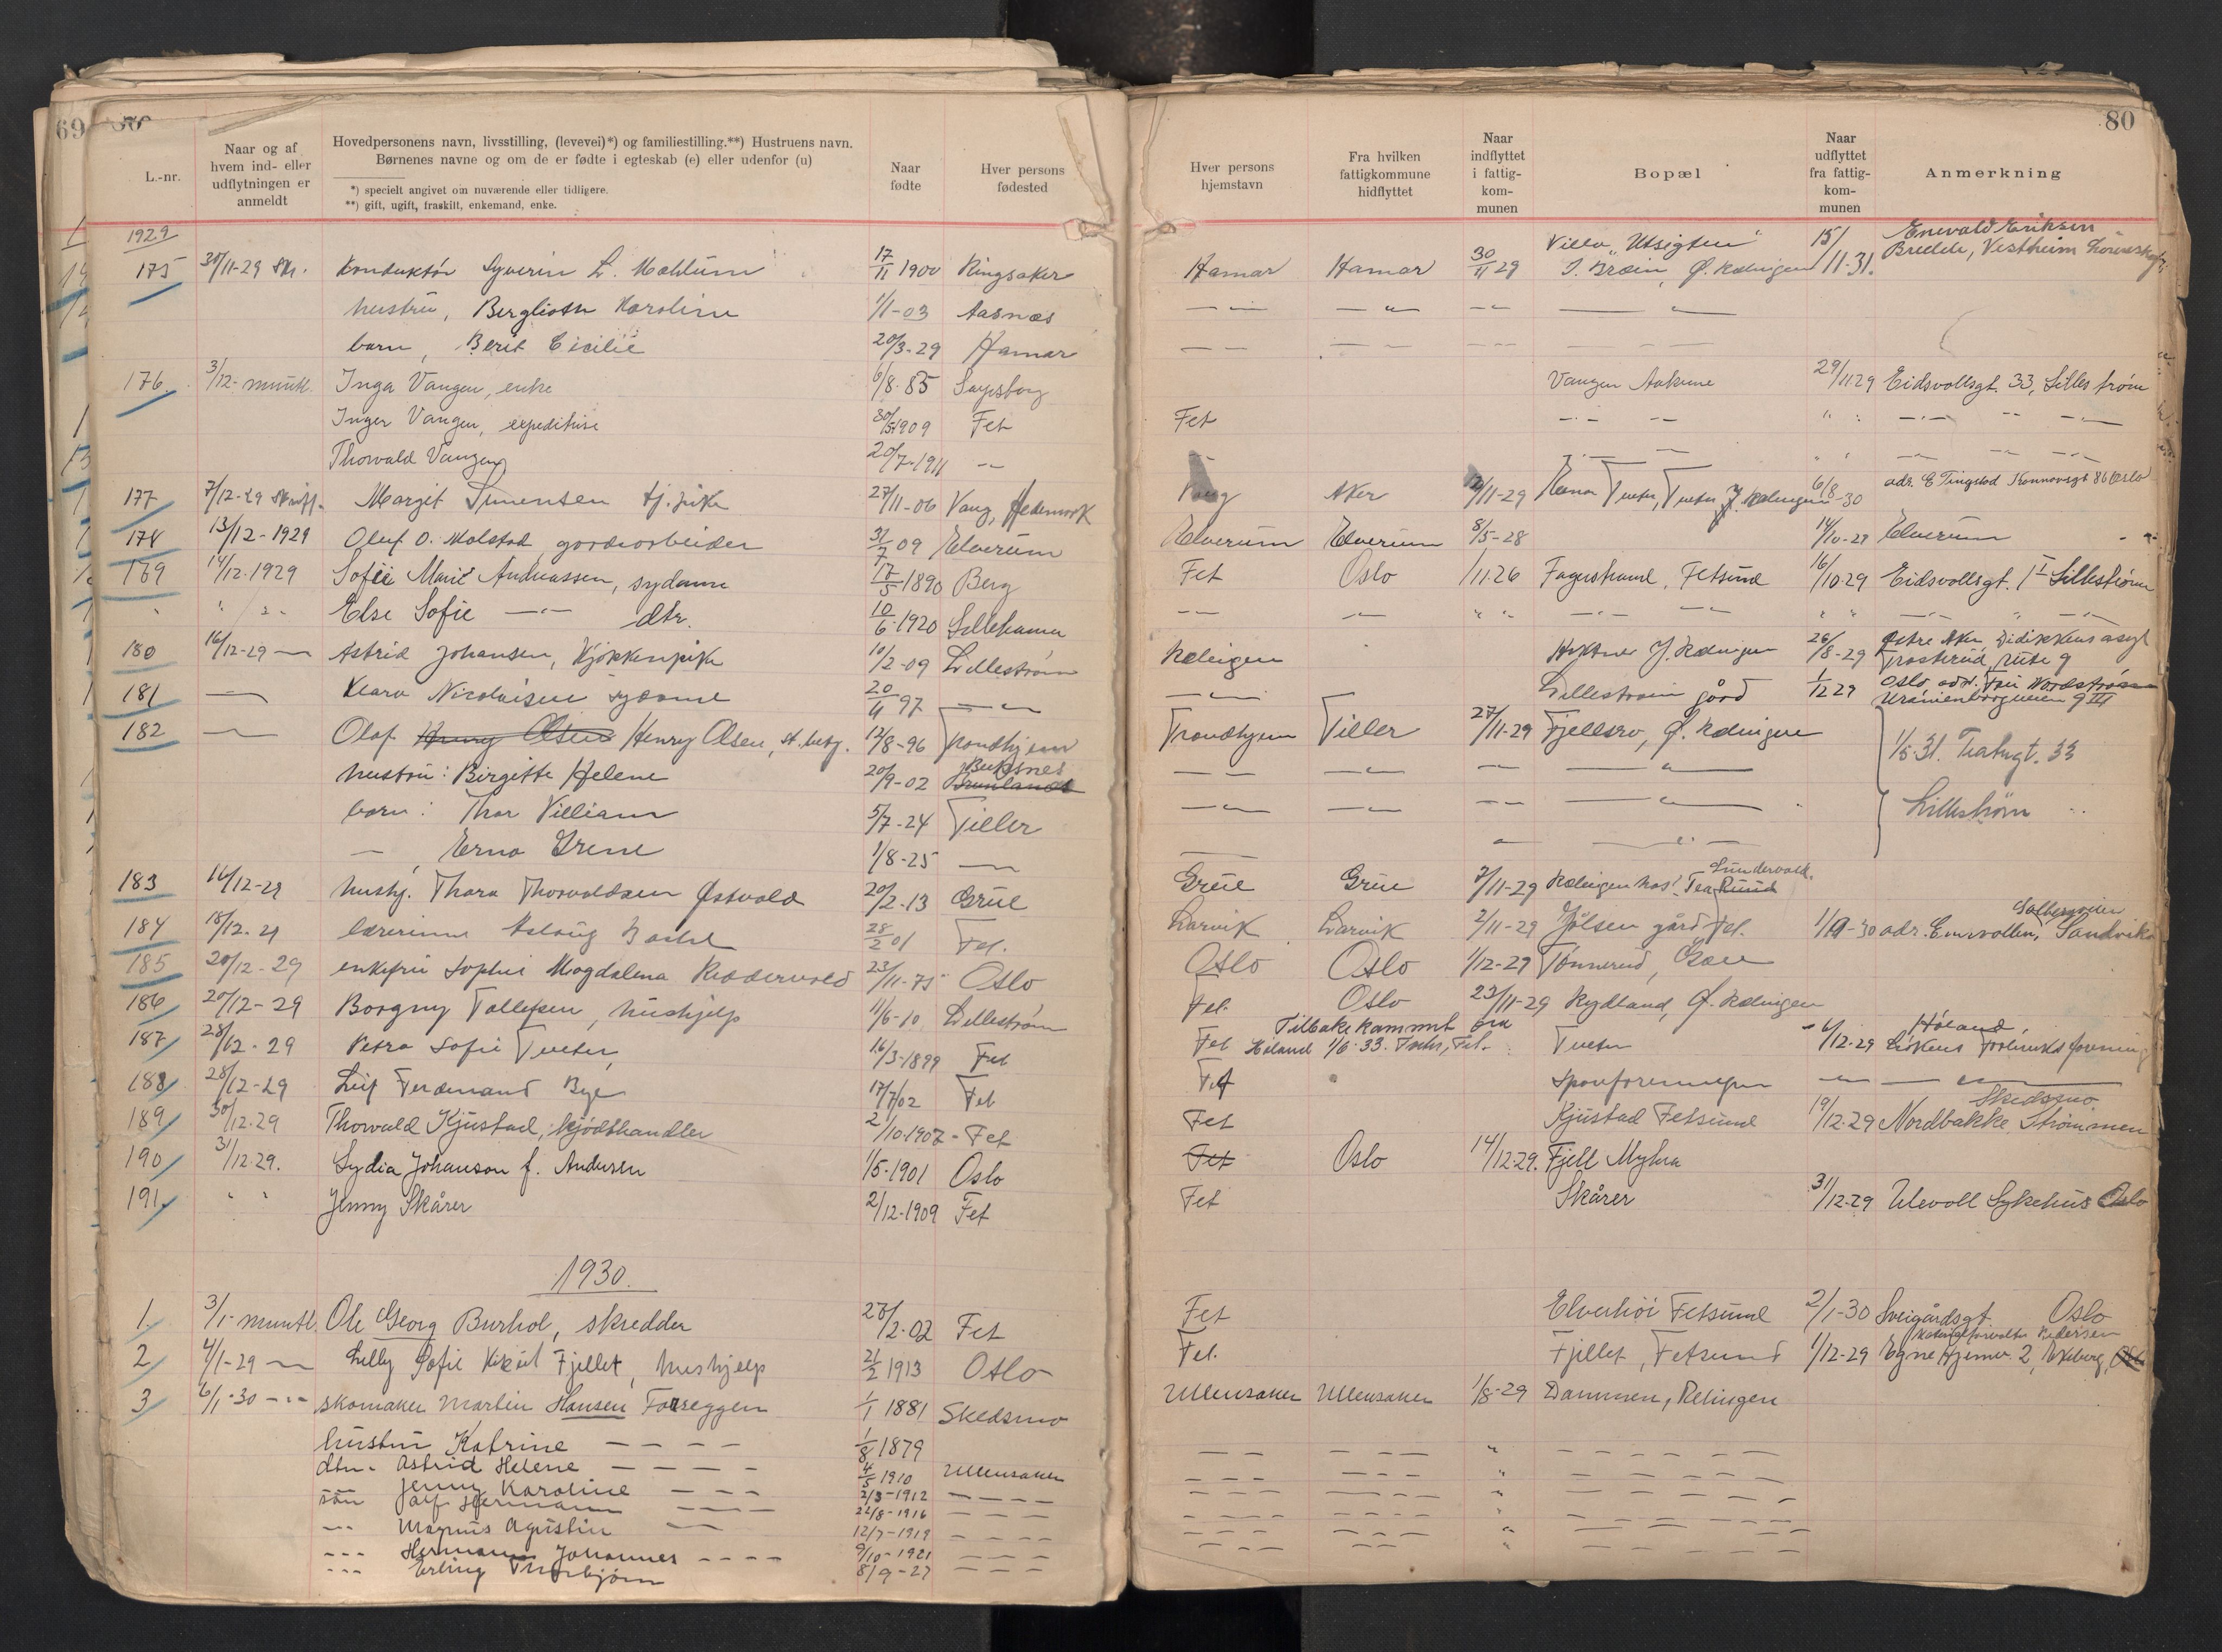 69
80
L.-nr.
Naar og af hvem ind- eller udflytningen er anmeldt
Hovedpersonens navn, livsstilling, (levevei)*) og familiestilling.**) Hustruens navn.
Børnenes navne og om de er fødte i egteskab (e) eller udenfor (u)
*) specielt angivet om nuværende eller tidligere.
**) gift, ugift, fraskilt, enkemand, enke.
Naar fødte
Hver persons fødested
Hver persons hjemstavn
Fra hvilken fattigkommune hidflyttet
Naar indflyttet i fattigkommunen
Bopæl
Naar udflyttet fra fattigkommunen
Anmerkning
1929
175 30/11-29 Konduktør Syverin L. Mæhlum 17/11 1900 Ringsaker Hamar Hamar 30/11 29 Villa "Utsigten" Ø. Rælingen 15/11-31. Enevald Eriksen Vestheim
hustru, Berglioth Karoline 1/1-03 Aasnæs
barn, Berit Cicilie 20/3-29 Hamar
176. 3/12- muntl. Inga Vangen, enke 6/8-85 Sarpsborg Vangen 29/11 29 Eidsvollsgt. 33, Lillestrøm
Inger Vangen, expeditrise 30/5 1909 Fet Fet
Thorvald Vangen 20/7-1911
177 7/12-29 Margit Simensen tj. pike 27/11-06 Vang, Hedemark Vang Aker /11-29 6/8-30 adr. E Tingstad 86 Oslo
178 13/12-1929 Oluf O. Molstad, gardsarbeider 31/7 09 Elverum Elverum Elverum 8/5-28 14/10-29 Elverum
169 14/12-1929 Sofie Marie Andreassen, sydame 17/5-1890 Berg Fet Oslo 1/11 26 Fagerstrand, Fetsund 16/10-29 Eidsvollsgt. 1 I Lillestrøm
Else Sofie dtr. 10/6-1920 Lillehamer
180 16/12-29 Astrid Johansen, Kjøkkenpike 10/2-09 Lillestrøm Rælingen 26/8-29 Trosterud, rute 9
181 Klara Nicolaisen sydame 20/11 97 Lillestrøm gård 1/12 29 Oslo adr. Uranienborgveien 9 III
182 Olaf Henry Olsen Henry Olsen, 12/8-96 Trondhjem Trondhjem Tiller 27/11-29 Fjellsro, Ø. Rælingen 1/5-31. 33
hustru: Birgitte Helene 20/9-02 Buksnes
barn: Thor Villiam 5/7-24 Tiller Lillestrøm
Erna Irene 1/8-25
183 16/12-29 hushj. Thora Thorvaldsen Østvold 20/2-13 Grue Grue Grue 7/11-29 Rælingen hos
184 18/12-29 lærerinne Aslaug 28/2 01 Fet. Larvik Larvik 2/11-29 Jølsen gård Fet. 1/9-30 adr. Sandvika
185 20/12-29 enkefru Sophie Magdalena Riddervold 23/11-75 Oslo Oslo Oslo 1/12-29 Tønnerud
186 20/12-29 Borgny Tollefsen, hushjelp 11/6-10 Lillestrøm Fet. Oslo 23/11-29 Rydland, Ø. Rælingen
187 28/12-29 Petra Sofie Tveter, 16/3-1899 Fet Fet Tilbake kommet fra Høland 1/6-33. Tveter 6/12-29 Høland,
188 28/12-29 Leif Ferdinand Bye 17/7 02 Fet Fet
189 30/12-29 Thorvald Kjustad, kjødthandler 2/10-1907 - Fet Fet Kjustad Fetsund 19/12-29 Nordbakke, Strømmen Skedsmo
190 31/12-29. Lydia Johanson f. Andersen 1/5-1901 Oslo Fet Oslo 14/12-29. Fjell Myhra
191 Jenny Skårer 2/12-1909 Fet Fet Skårer 31/12-29 Ulevoll Sykehus Oslo
1930.
1. 3/1- muntl. Ole Georg Burhol, skredder 28/2-02 Fet Fet Elverhøi Fetsund 2/1-30 Oslo
2 4/1-29 Lilly Sofie Fjellet, hushjelp 21/2 1913 Oslo Fet. Fjellet, Fetsund 1/12-29 Egne Hjemv. 2, Ekeberg, Oslo
3 6/1-30 skomaker Martin Hansen Forseggen 1/1 1881 Skedsmo Ullensaker Ullensaker 1/8-29 Dammen, Relingen
hustru Katrine 1/8 1879
dtr. Astrid Helene 4/5 1910 Ullensaker
Jenny Karoline 2/3-1912
søn Hermann 22/8-1916
Magnus Agustin 12/7-1919
Hermann Johannes 9/10-1921
Erling Thorbjørn 8/9-27